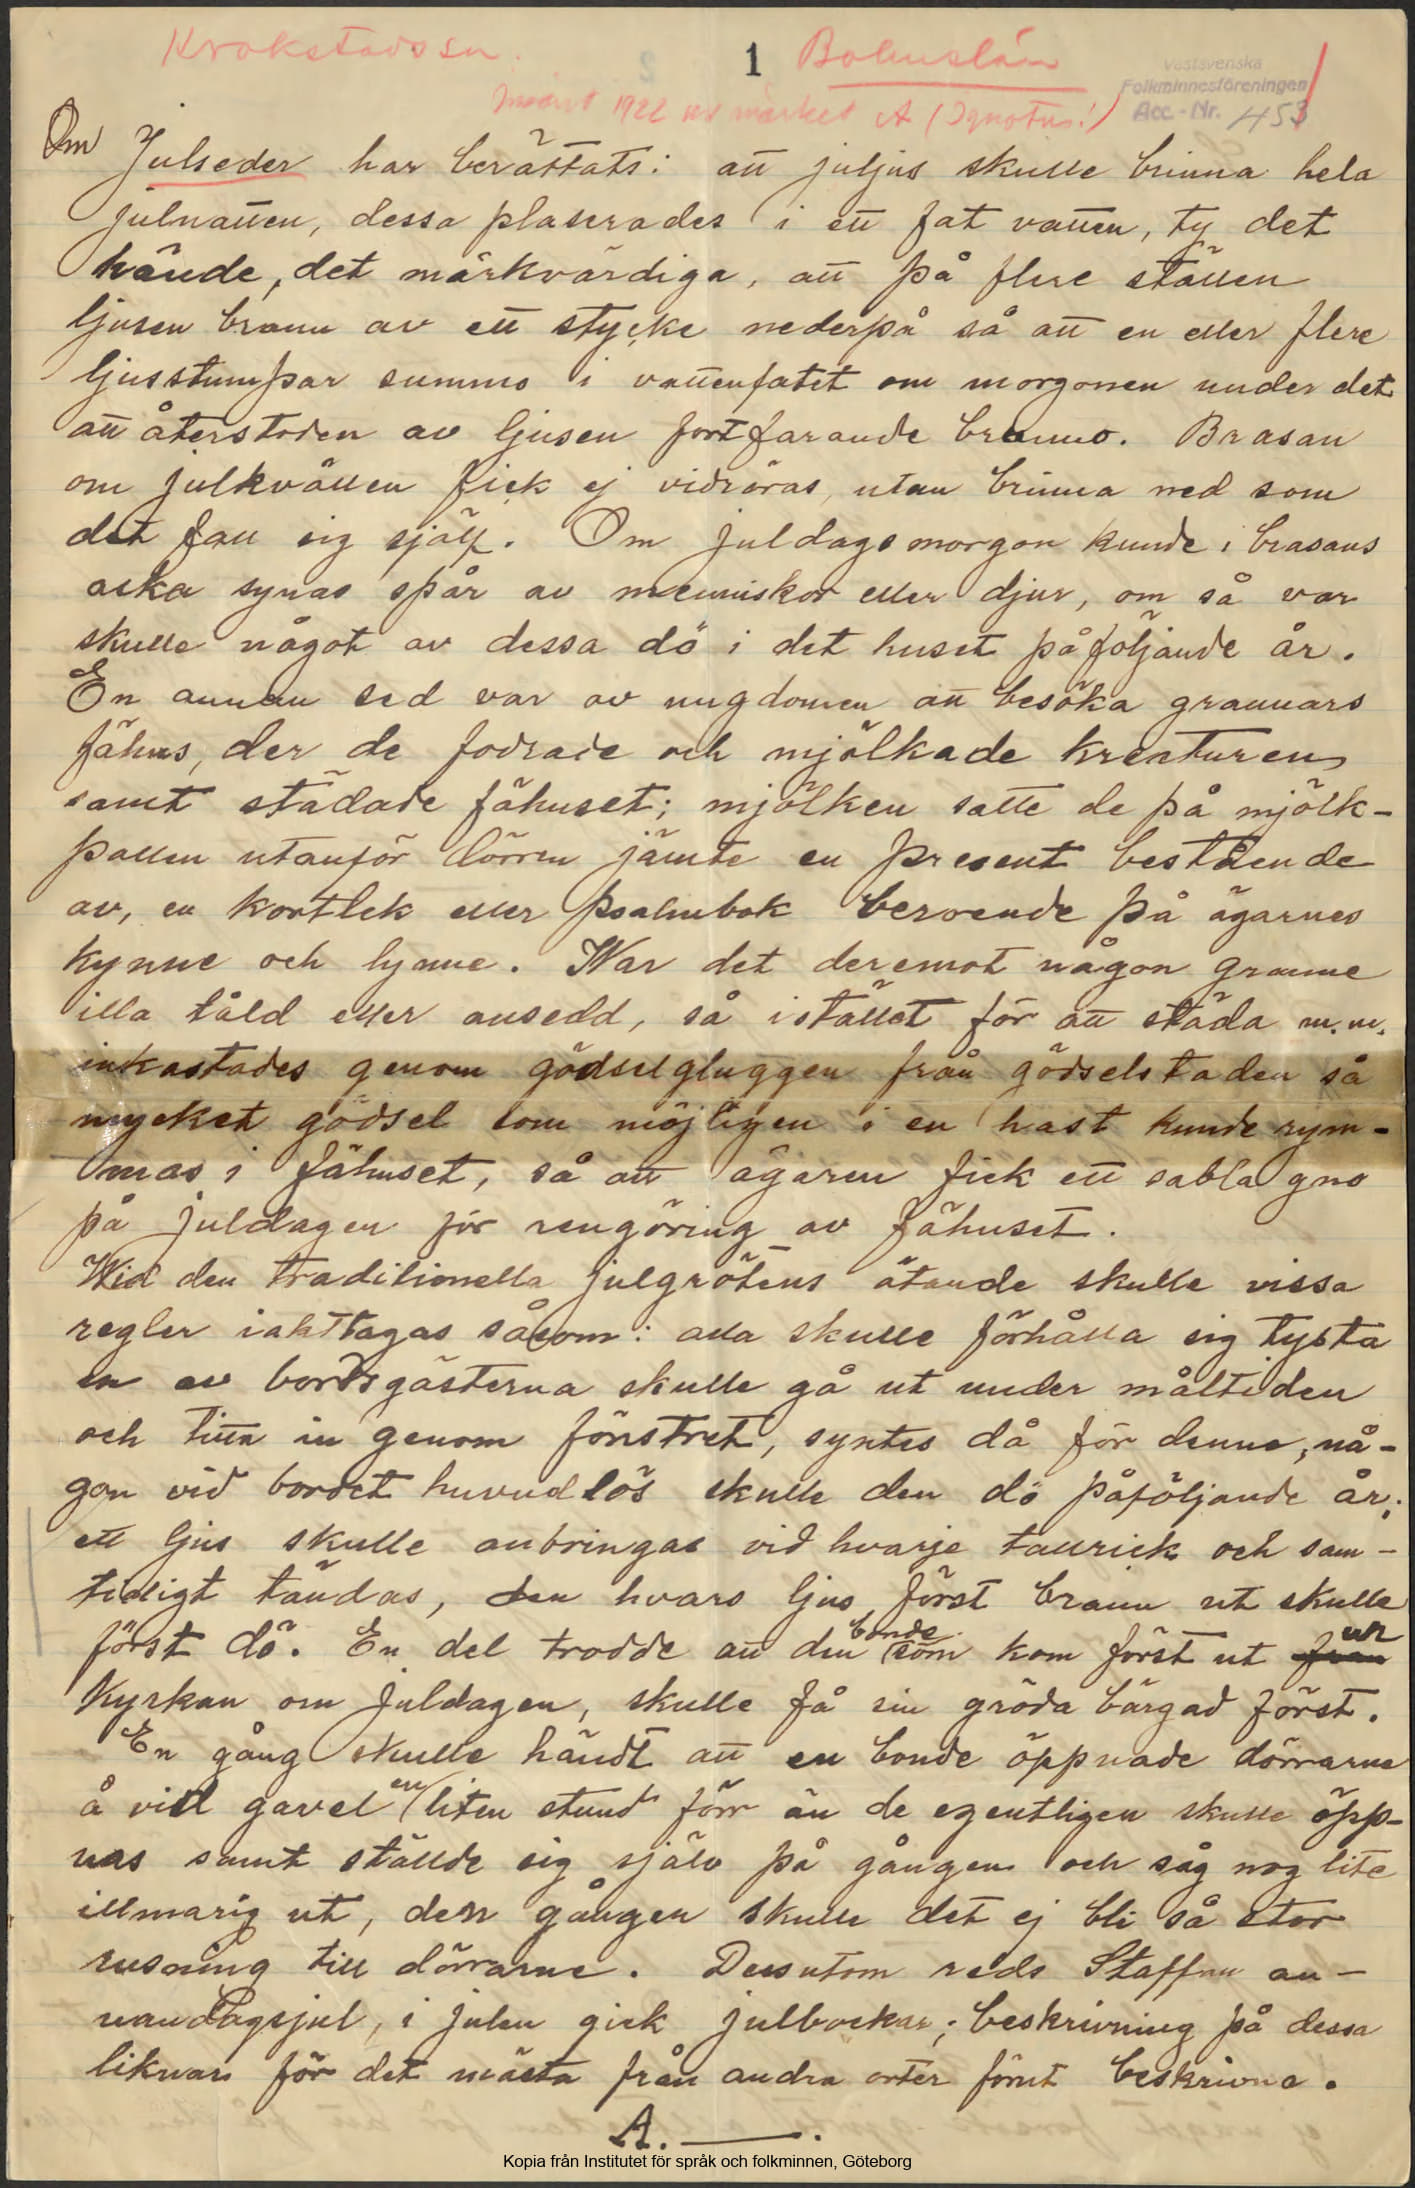 Krokstads sn.
1
Bohuslän
Västsvenska
Folkminnesföreningen
Acc.-Nr. 453
1922 märket A (Ignotus!)
Om Julseder har berättats: att juljus skulle brinna hela
julnatten, dessa plaserades i ett fat vatten, ty det
hände, det märkvärdiga, att på flere ställen
ljusen brann av ett stycke nederpå så att en eller flere
ljusstumpar summo i vattenfatet om morgonen under det
att återstoden av ljusen fortfarande brunno. Brasan
om julkvällen fick ej vidröras, utan brinna ned som
det fall sig själf. Om juldagsmorgon kunde i brasans
aska synas spår av menniskor eller djur, om så var
skulle något av dessa dö i det huset påföljande år.
En annan sed var av ungdomen att besöka grannars
fähus, der de fodrade och mjölkade kreaturen
samt städade fähuset; mjölken satte de på mjölk-
pallen utanför dörren jämte en present bestående
av, en kortlek eller psalmbok beroende på ägarnes
kynne och lynne. War det deremot någon granne
illa tåld eller ansedd, så istället för att städa m.m.
inkastades genom gödselgluggen från gödselstaden så
mycket gödsel som möjligen i en hast kunde rym-
mas i fähuset, så att ägaren fick ett sabla gno
på juldagen för rengöring av fähuset.
Wid den traditionella julgrötens ätande skulle vissa
regler iakttagas såsom: alla skulle förhålla sig tysta
en av bordsgästerna skulle gå ut under måltiden
och titta in genom fönstret, syntes då för denne, nå-
gon vid bordet huvudlös skulle den dö påföljande år;
ett ljus skulle anbringas vid hvarje tallrick och sam-
tidigt tändas, den hvars ljus först brann ut skulle
först dö. En del trodde att den bonde som kom först ut ur
kyrkan om juldagen, skulle få sin gröda bärgad först.
En gång skulle händt att en bonde öppnade dörrarne
å vid gavel en liten stund förr än de egentligen skulle öpp-
nas samt ställde sig själv på gången och såg nog lite
illmarig ut, den gången skulle det ej bli så stor
rusning till dörrarne. Dessutom reds Staffan an-
nandagsjul, i julen gick julbockar; beskrivning på dessa
likvar för det mästa från andra orter förut beskrivna.
A.
Kopia från Institutet för språk och folkminnen, Göteborg